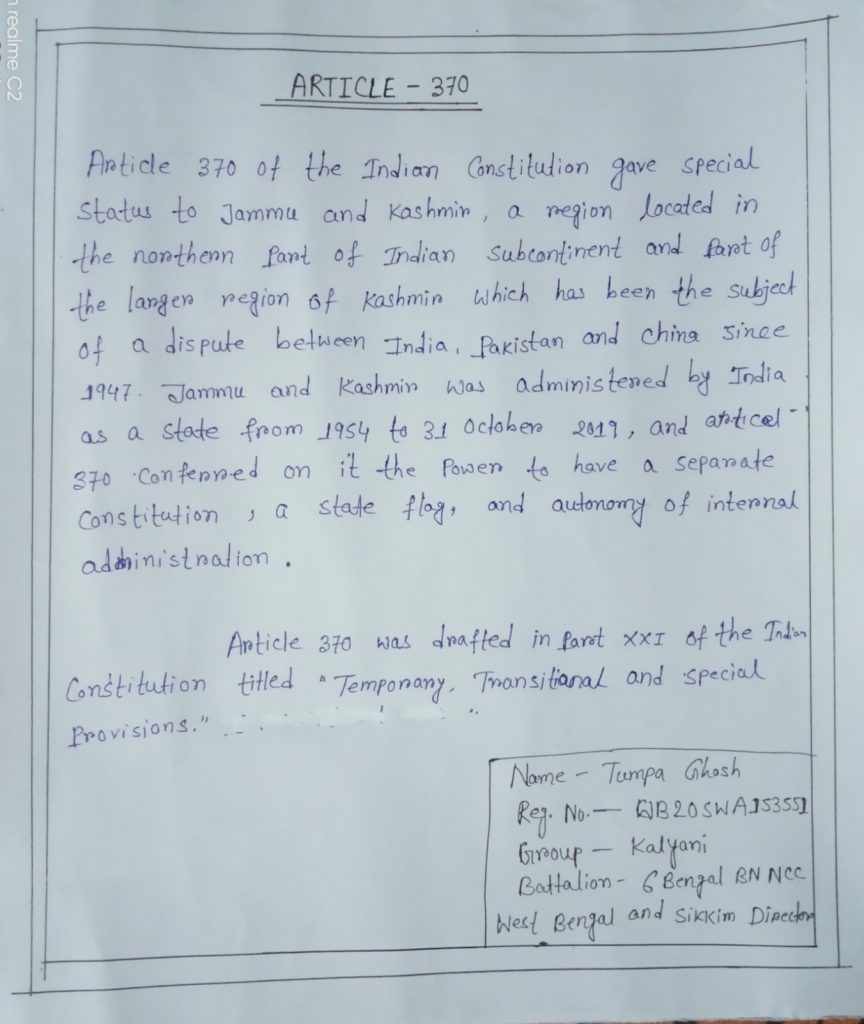 realme C2
ARTICLE - 370
Article 370 of the Indian Constitution gave special
Status to Jammu and Kashmir, a region located in
the northern part of Indian subcontinent and part of
the larger region of Kashmir which has been the subject
of a dispute between India, Pakistan and China since
1947. Jammu and Kashmir was administered by India
as a state from 1954 to 31 October 2019, and artical-
370 Conferred on it the Power to have a separate
Constitution, a state flag, and autonomy of internal
administration.
Article 370 was drafted in Part XXI of the Indian
Constitution titled "Temporary, Transitianal and special
Provisions."
Name - Tumpa Ghosh
Reg. No. - WB20SWA153551
Group - Kalyani
Battalion - 6 Bengal BN NCC
West Bengal and Sikkim Director